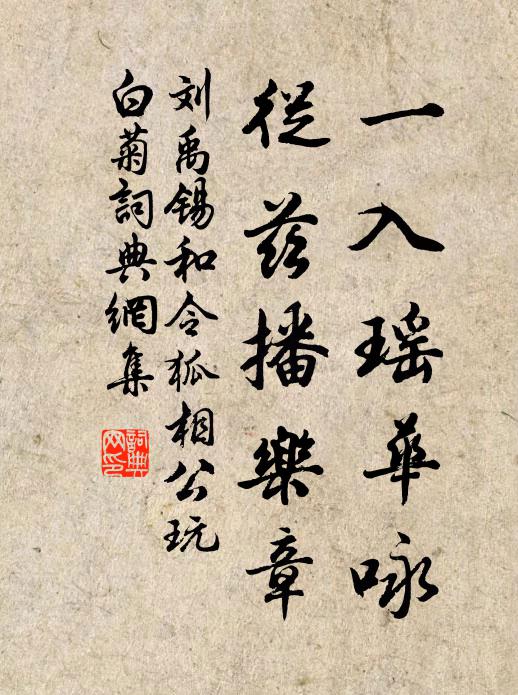 一入瑶華咏
從茲播樂章
刘禹锡和令狐相公玩
白菊詞典網集
詞典
网印